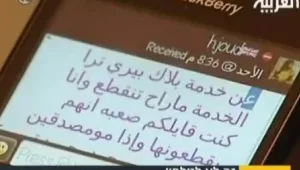 العربية
Berry
hjoud
Received الأحد @ 8:36 م
عن خدمة بلاك بيري ترا
الخدمة ماراح تنقطع وانا
كنت قايلكم صعبه انهم
يقطعونها وإذا مومصدقين